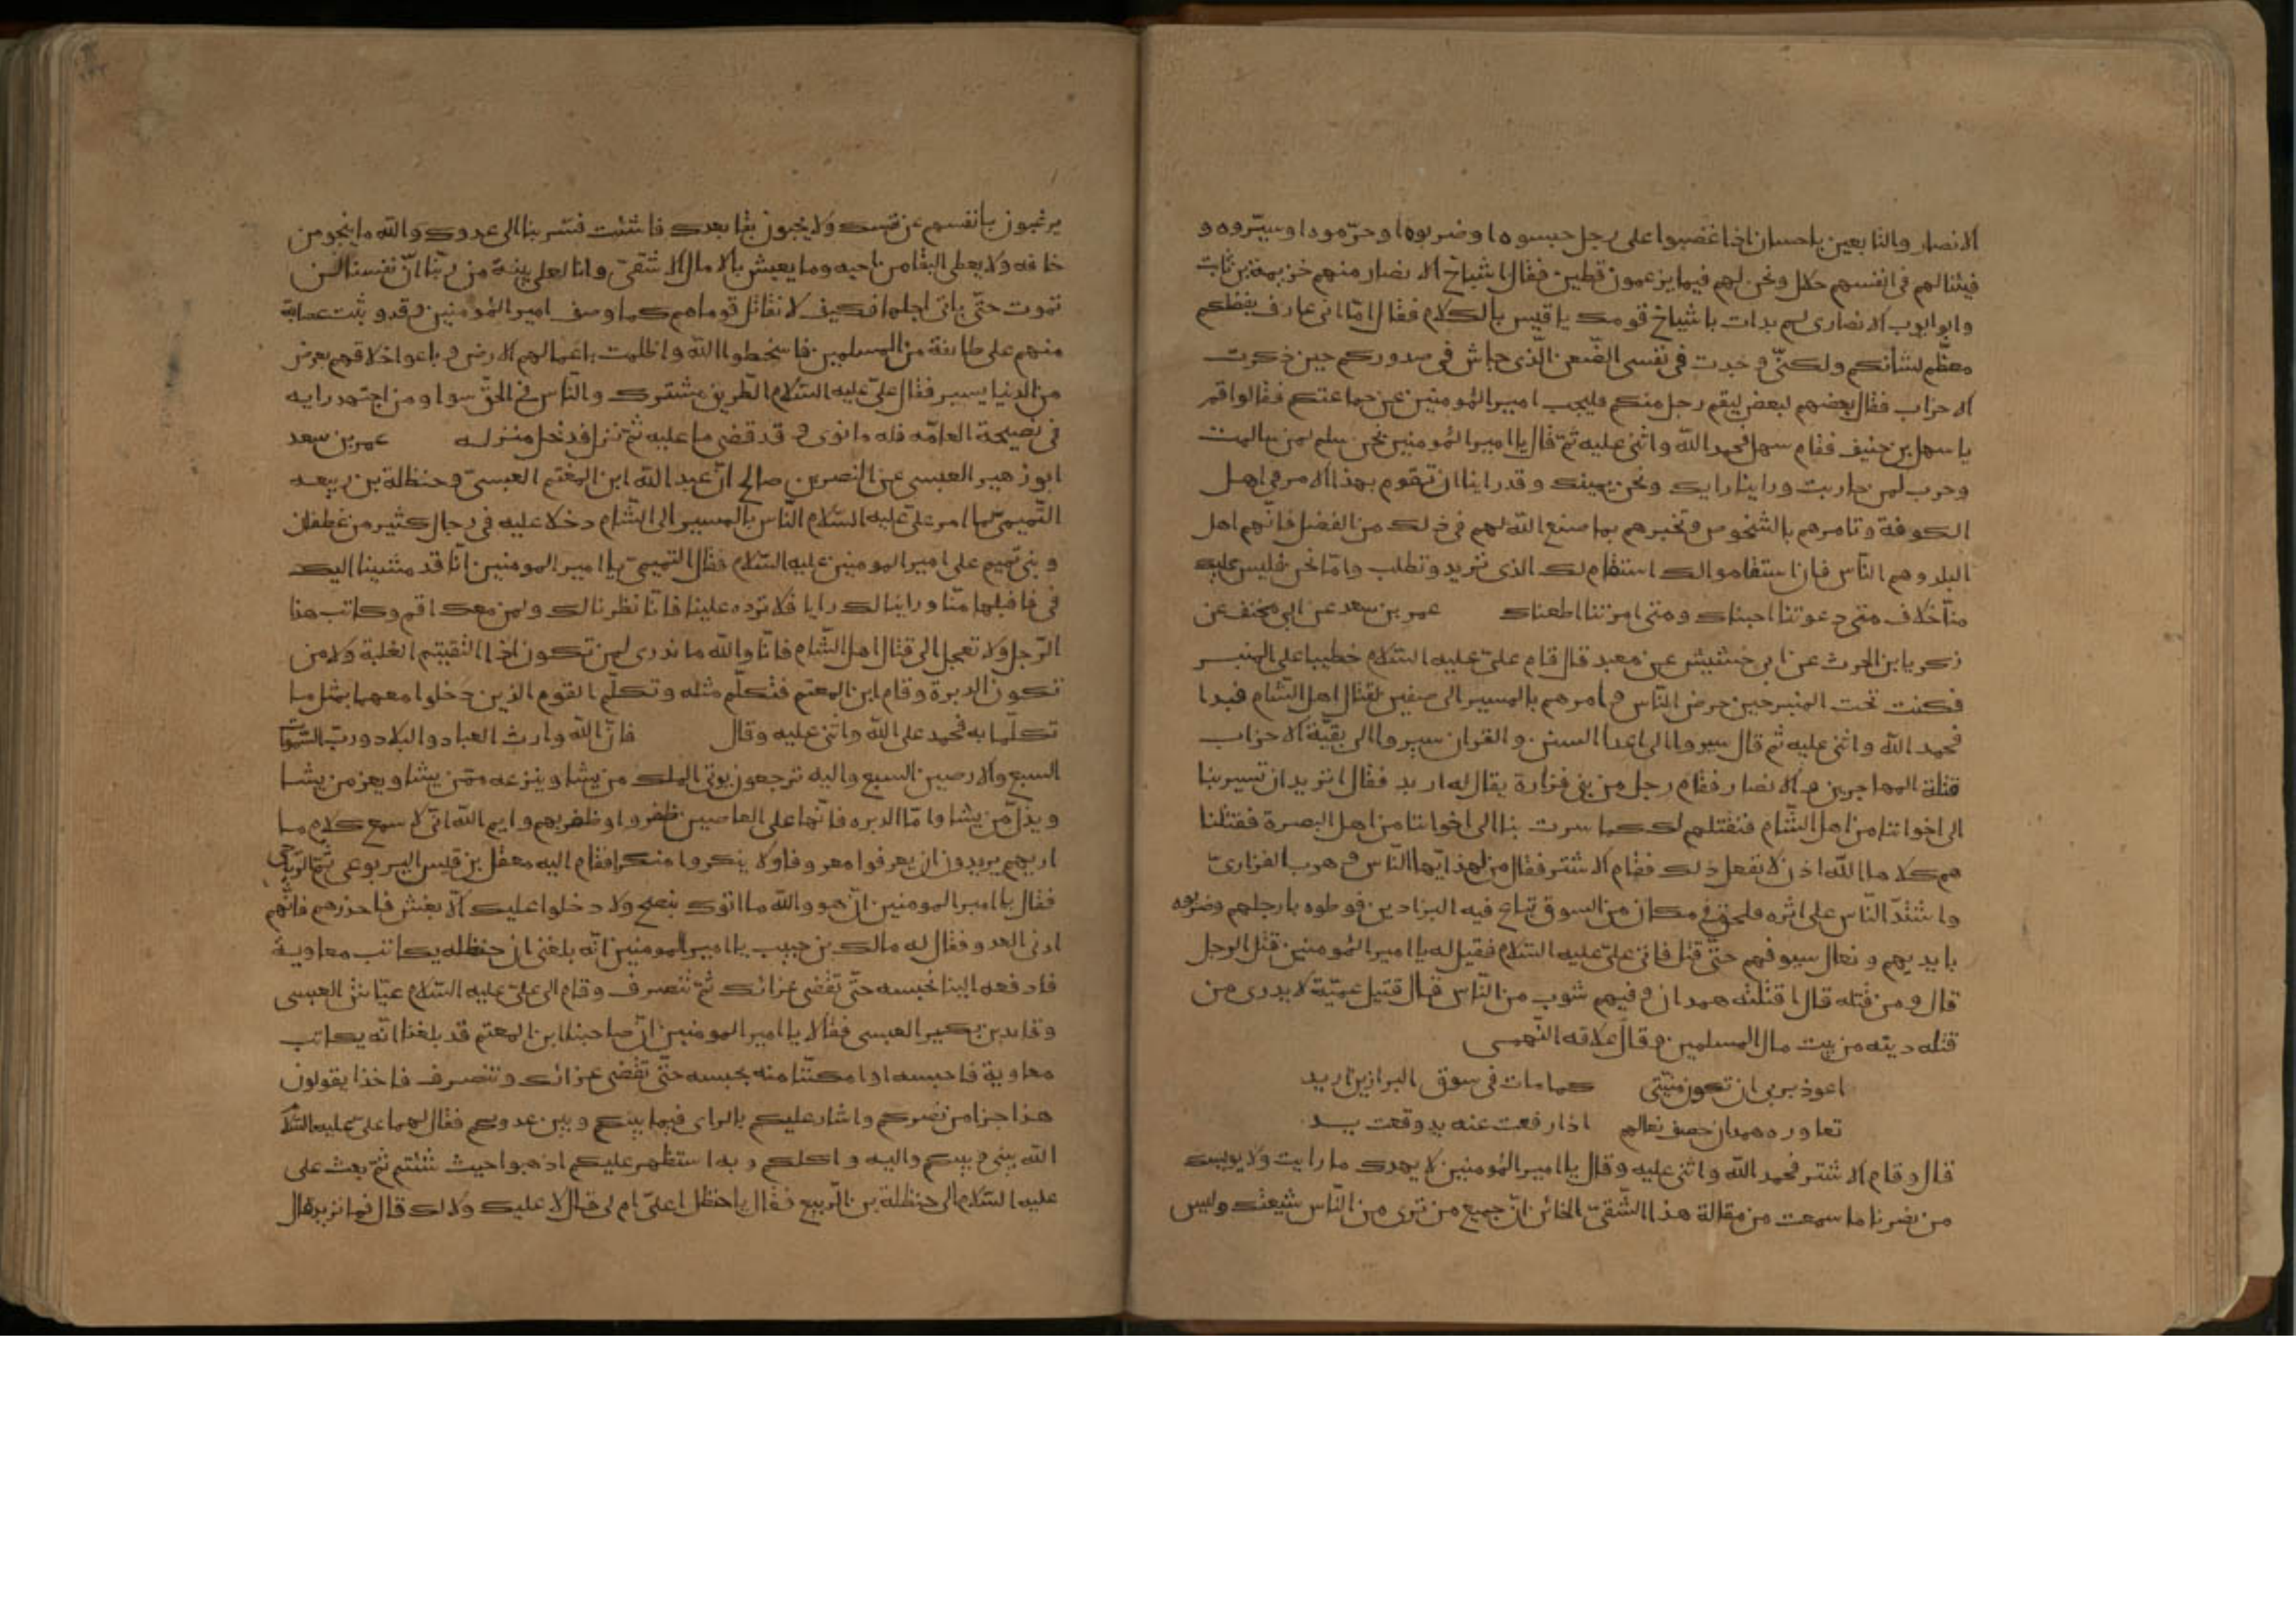 الانصار والتابعين باحسان اذا غضبوا على رجل حبسوه او ضربوه او حرّموه او سيّروه و
فيئنا لهم فى انفسهم حلال ونحن لهم فيما يزعمون قطين فقال اشياخ الانصار منهم خزيمة بن ثابت
وابو ايوب الانصارى لم بدات باشياخ قومك يا قيس بالكلام فقال امّا انى عارف بفضلكم
معظّم لشانكم ولكنّى وجدت فى نفسى الضّغن الّذى جاش فى صدوركم حين ذكرت
الاحزاب فقال بعضهم لبعض ليقم رجل منكم فليجب امير المؤمنين عن جماعتكم فقالوا قم
يا سهل بن حنيف فقام سهل فحمد الله واثنى عليه ثمّ قال يا امير المؤمنين نحن سلم لمن سالمت
وحرب لمن حاربت وراينا رايك ونحن يمينك وقد راينا ان تقوم بهذا الامر فى اهل
الكوفة وتامرهم بالشخوص وتخبرهم بما صنع الله لهم فى ذلك من الفضل فانّهم اهل
البلد وهم النّاس فان استقاموا لك استقام لك الذى تريد وتطلب وامّا نحن فليس عليك
منّا خلاف متى دعوتنا اجبناك ومتى امرتنا اطعناك عمر بن سعد عن ابى مخنف عن
زكريا بن الحرث عن ابى خشيش عن معبد قال قام علىّ عليه السّلام خطيبا على المنبر
فكنت تحت المنبر حين حرض النّاس و امرهم بالمسير الى صفين لقتال اهل الشّام فبدا
فحمد الله واثنى عليه ثم قال سيروا الى اعدا السنن والقران سيروا الى بقيّة الاحزاب
قتلة المهاجرين و الانصار فقام رجل من بنى فزارة يقال له اربد فقال اتريد ان تسير بنا
الى اخواننا من اهل الشّام فنقتلهم لك كما سرت بنا الى اخواننا من اهل البصرة فقتلنا
هم كلا ها الله اذن لا نفعل ذلك فقام الاشتر فقال من لهذا ايّها النّاس و هرب الفزارىّ
واشتدّ النّاس على اثره فلحق فى مكان من السوق تباع فيه البراذين فوطوه بارجلهم وضربوه
بايديهم ونعال سيوفهم حتّى قتل فاتى علىّ عليه السّلام فقيل له يا امير المؤمنين قتل الرجل
قال و من قتله قال اقتلته همدان وفيهم شوب من النّاس فقال قتيل عميّة لا يدرى من
قتله ديته من بيت مال المسلمين و قال علاقه التّيمى
اعوذ بربى ان تكون منيّتى كما مات فى سوق البراذين اربد
تعاوره همدان خصف نعالهم اذا رفعت عنه يد وقعت يد
قال وقام الاشتر فحمد الله واثنى عليه وقال يا امير المؤمنين لا يهدك ما رايت ولا يويسك
من نصرنا ما سمعت من مقالة هذا الشّقىّ الخائن انّ جميع من ترى من النّاس شيعتك وليس
يرغبون بانفسهم عن نفسك ولا يحبون بقا بعدك فان شئت فسر بنا الى عدوك والله ما ينجو من
خافه ولا يعطى البقا من احبه وما يعيش بالامال الا شقىّ وانا لعلى بينة من ربّنا انّ نفسا لن
تموت حتّى ياتى اجلها فكيف لا نقاتل قوما هم كما وصف امير المؤمنين وقد وثبت عصابة
منهم على طائفة من المسلمين فاسخطوا الله واظلمت باعمالهم الارض و باعوا خلاقهم بعرض
من الدنيا يسير فقال علىّ عليه السّلام الطّريق مشترك والنّاس فى الحقّ سوا ومن اجتهد رايه
فى نصيحة العامّه فله ما نوى و قد قضى ما عليه ثمّ نزل فدخل منزله عمر بن سعد
ابو زهير العبسى عن النضر بن صالح انّ عبد الله ابن المعتم العبسىّ وحنظلة بن ربيعه
التّميمىّ لما امر علىّ عليه السّلام النّاس بالمسير الى الشّام دخلا عليه فى رجال كثير من غطفان
وبنى تميم على امير المومنين عليه السّلام فقال التميمىّ يا امير المومنين انّا قد مشينا اليك
فى فاقبلها منّا وراينا لك رايا فلا ترده علينا فانّا نظرنا لك ولمن معك اقم وكاتب هذا
الرّجل ولا تعجل الى قتال اهل الشّام فانّا والله ما ندرى لمن تكون اذا التقيتم الغلبة ولا من
تكون الدبرة وقام ابن المعتم فتكلّم مثله وتكلّم القوم الذين دخلوا معهما بمثل ما
تكلّما به فحمد على الله واثنى عليه وقال فانّ الله وارث العباد والبلاد وربّ السّموات
السبع والارضين السبع واليه ترجعون يوتى الملك من يشا وينزعه ممّن يشا ويعز من يشا
ويذلّ من يشا وامّا الدبره فانّها على العاصين ظفروا او ظفر بهم وايم الله انّى لاسمع كلام ما
اريهم يريدون ان يعرفوا معروفا ولا ينكروا منكرا فقام اليه معقل بن قيس اليربوعى ثمّ الرّياحى
فقال يا امير المومنين انّ هوو والله ما اتوك بنصح ولا دخلوا عليك الّا بغش فاحذرهم فانّهم
ادنى العدو فقال له مالك بن حبيب يا امير المومنين انّه بلغنى ان حنظله يكاتب معاوية
فادفعه الينا نحبسه حتّى تقضى غزاتك ثمّ تنصرف وقام الى علىّ عليه السّلام عيّاش العبسى
وقايد بن بكير العبسى فقالا يا امير المومنين انّ صاحبنا ابن المعتم قد بلغنا انّه يكاتب
معاوية فاحبسه او امكنّا منه نحبسه حتّى تقضى غزاتك وتنصرف فاخذا يقولون
هذا جزا من نصركم واشار عليكم بالراى فيما بينكم وبين عدوكم فقال لهما علىّ عليه السّلا
الله بينى وبينكم واليه واكلكم و به استظهر عليكم اذهبوا حيث شئتم ثمّ بعث على
عليه السّلام الى حنظلة بن الرّبيع فقال يا حنظل اعلىّ ام لى قال لا عليك ولا لك قال فما تريد قال